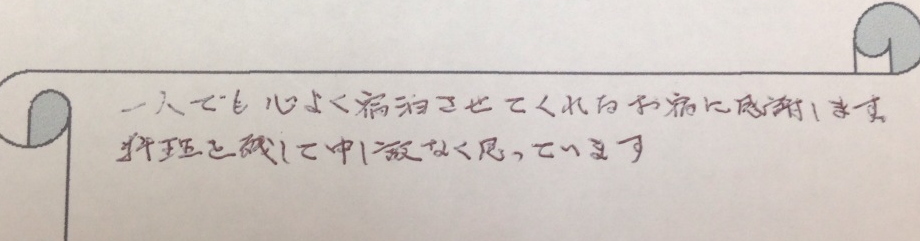 一人でも心よく宿泊させてくれるお宿に感謝します
料理を残して申し訳なく思っています